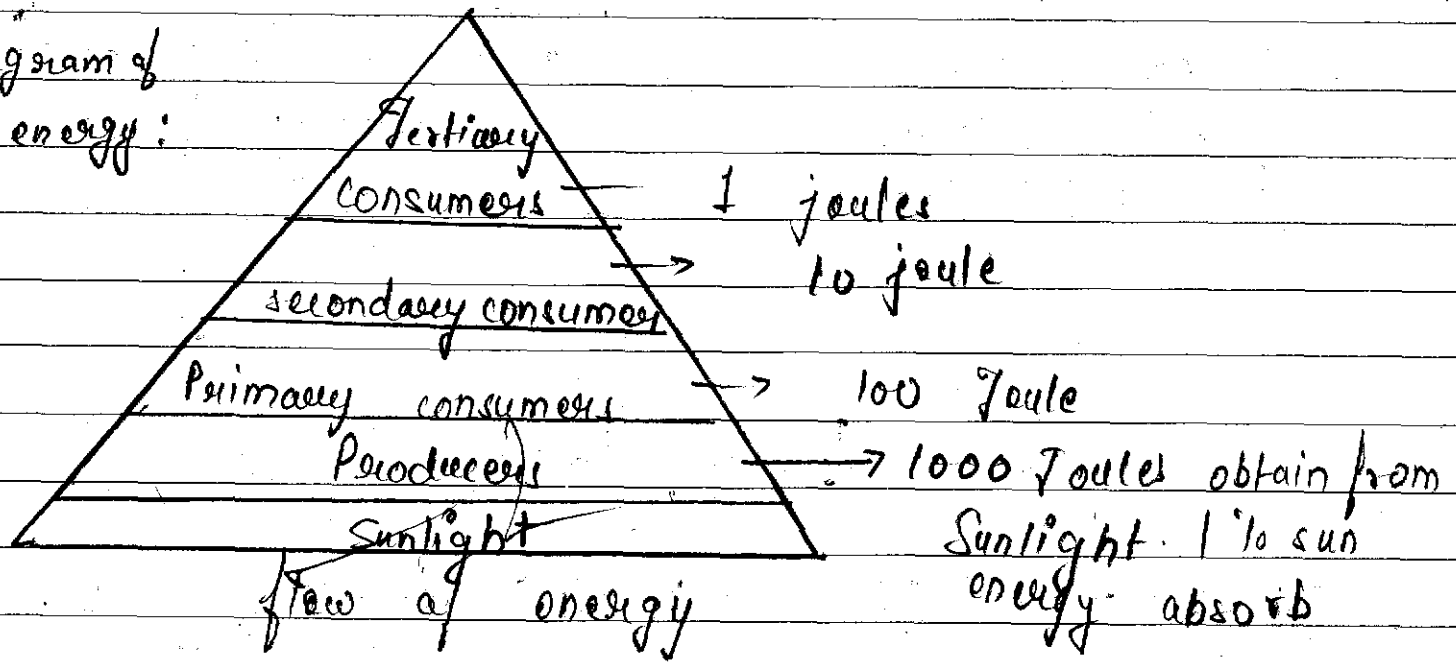 gram of
energy:
Tertiary
consumers
1 joules
10 joule
secondary consumer
Primary consumers
100 Joule
Producers
1000 Joules obtain from
Sunlight
Sunlight. 1% sun
energy absorb
flow of energy